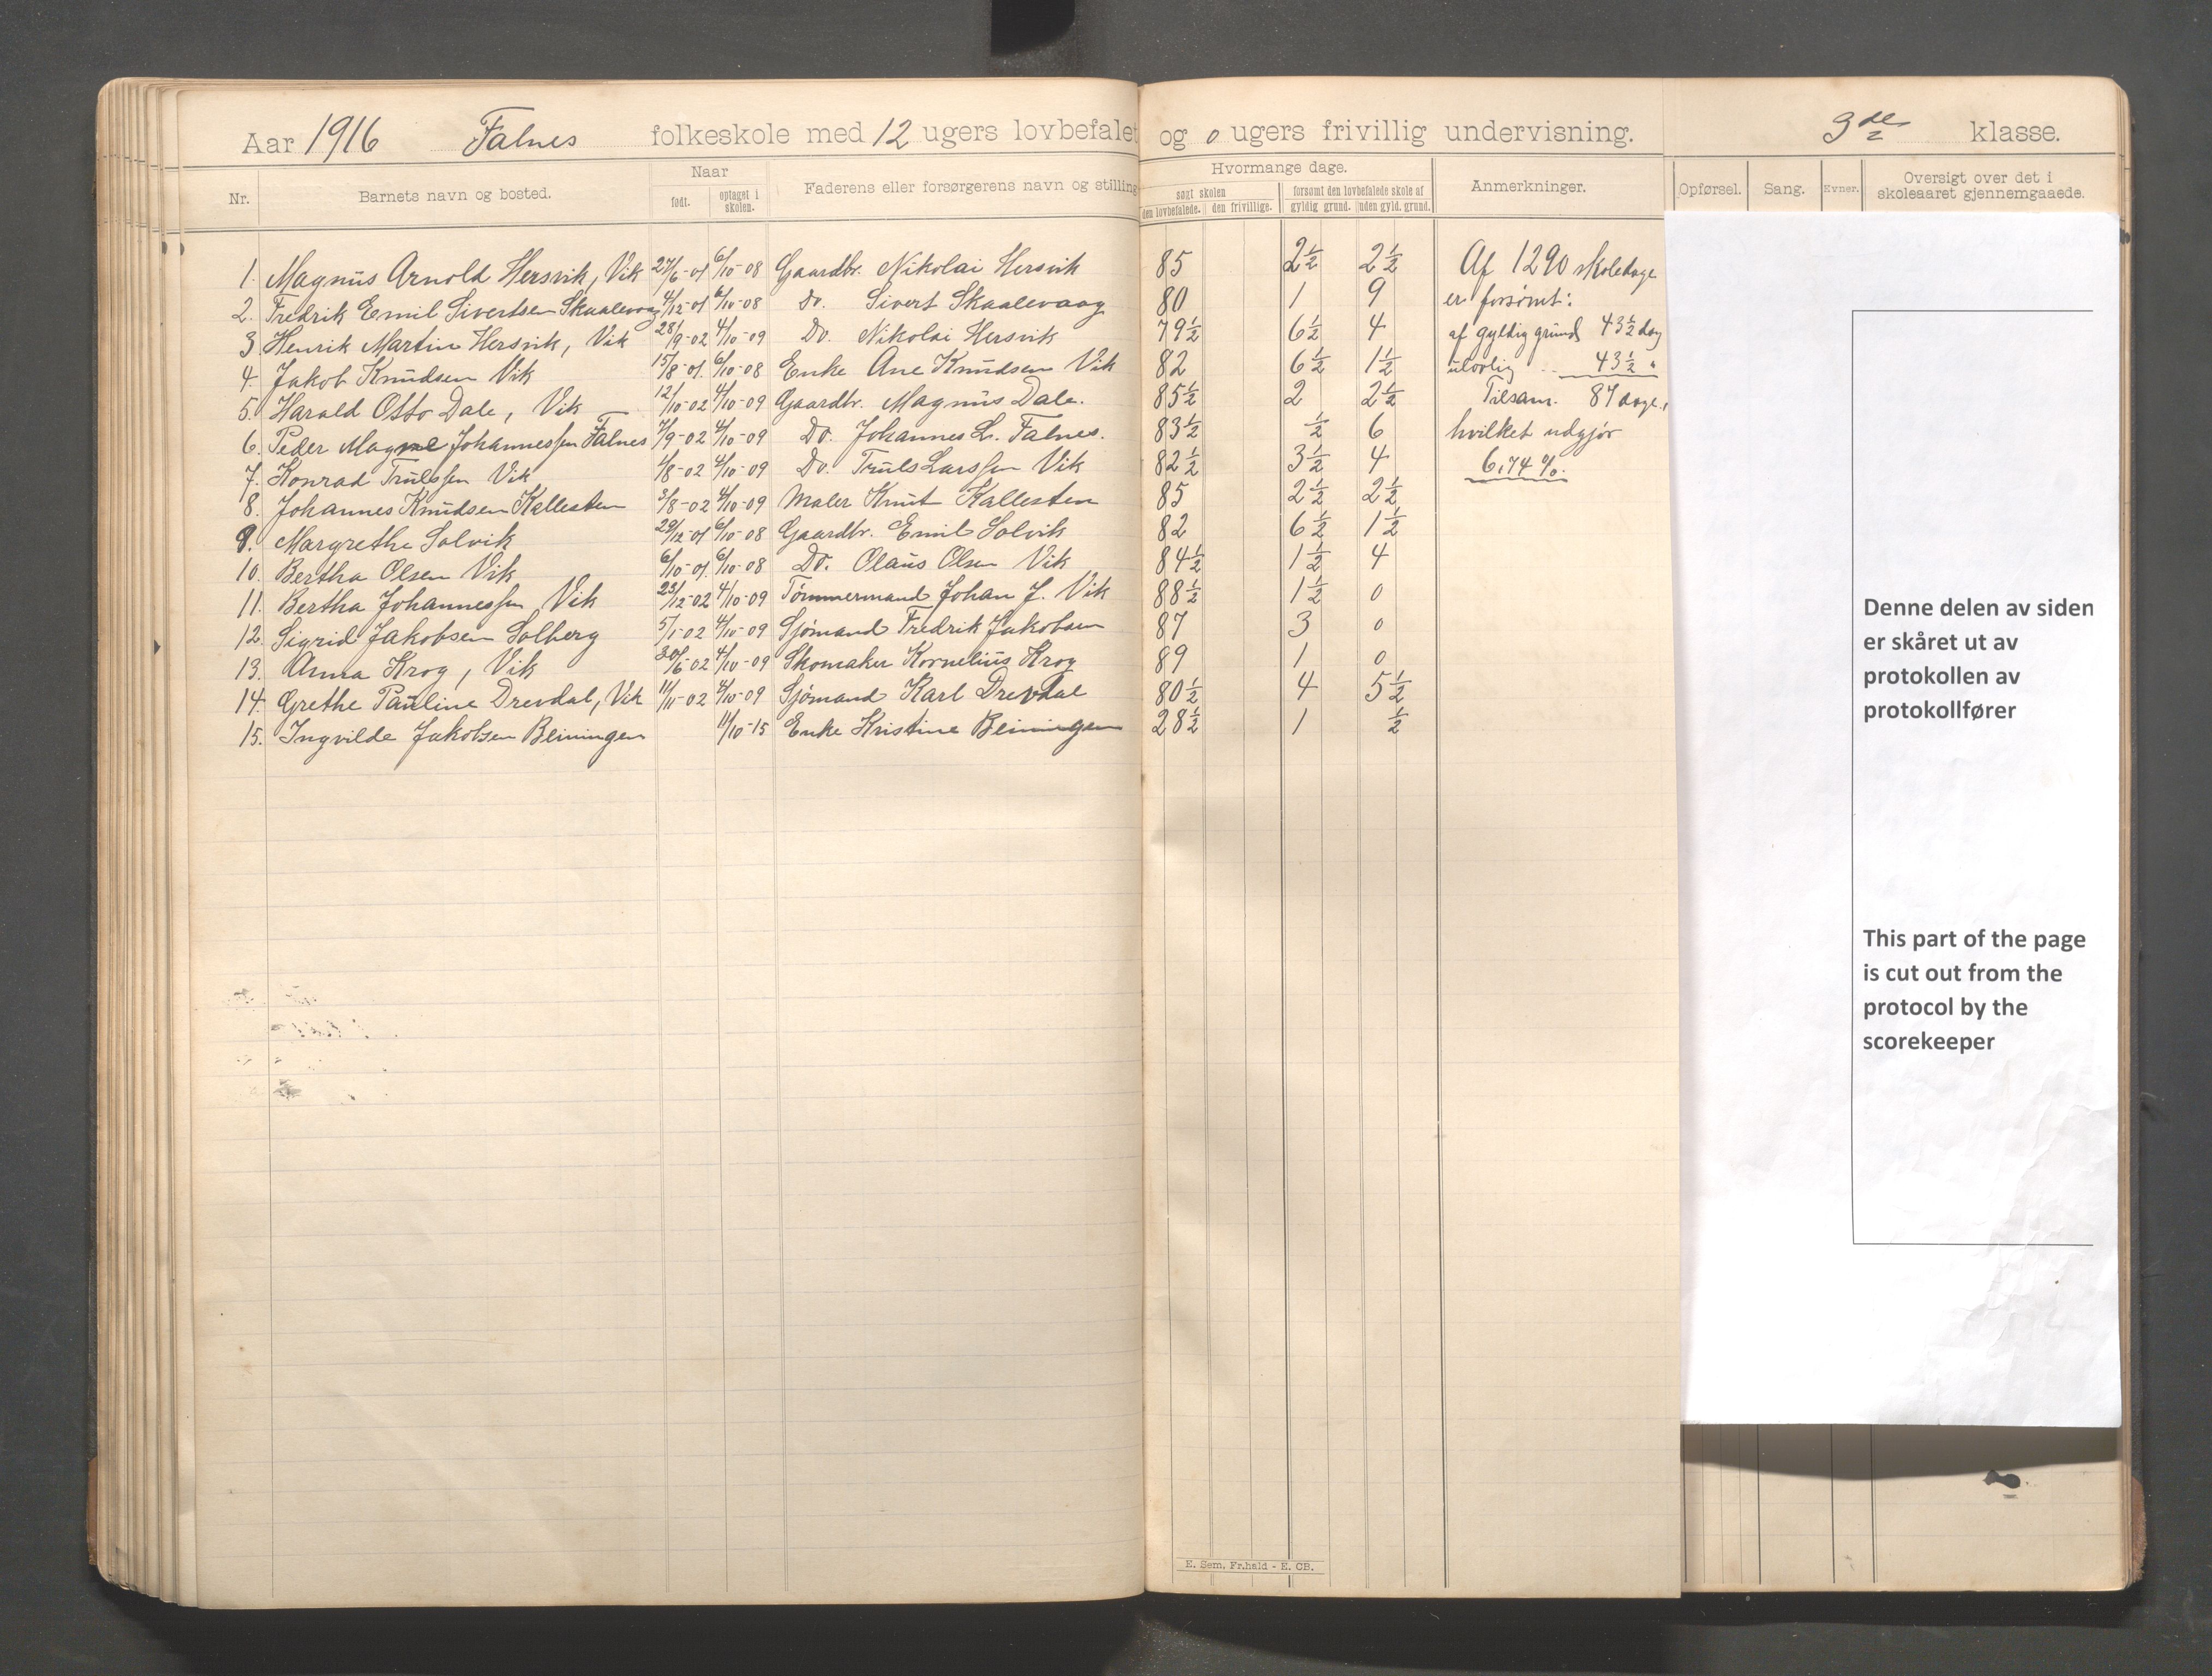 Aar 1916 Falnes folkeskole med 12 ugers lovbefalet og 0 ugers frivillig undervisning. 3de klasse.
Nr. Barnets navn og bosted. Naar født. optaget i skolen. Faderens eller forsørgerens navn og stilling Hvormange dage. søgt skolen den lovbefalede. den frivillige. forsømt den lovbefalede skole af gyldig grund. uden gyld. grund. Anmerkninger. Opførsel. Sang. Evner. Oversigt over det i skoleaaret gjennemgaaede.
1. Magnus Arnold Hersvik, Vik 27/6-01 6/10-08 Gaardbr. Nikolai Hersvik 85 2½ 2½ Af 1290 skoledage
2. Fredrik Emil Sivertsen Skaalevaag 4/12-01 6/10-08 Do. Sivert Skaalevaag 80 1 9 er forsømt:
3 Henrik Martin Hersvik, Vik 28/9-02 4/10-09 Do. Nikolai Hersvik 79½ 6½ 4 af gyldig grund 43½ dag
4. Jakob Knudsen Vik 15/8-01. 6/10-08 Enke Ane Knudsen Vik 82 6½ 1½ ulovlig .. 43½ "
5. Harald Otto Dale, Vik 12/10-02 4/10-09 Gaardbr. Magnus Dale. 85½ 2 2½ Tilsam. 87 dage,
6. Peder Magne Johannessen Falnes 7/9-02 4/10-09 Do. Johannes L. Falnes. 83½ ½ 6 hvilket udgjør
7. Konrad Trulssen Vik 1/8-02 4/10-09 Do. Truls Larssen Vik 82½ 3½ 4 6,74 %.
8. Johannes Knudsen Kallesten 3/8-02 4/10-09 Maler Knut Kallesten 85 2½ 2½
9. Margrethe Solvik 29/12-01 6/10-08 Gaardbr. Emil Solvik 82 6½ 1½
10. Bertha Olsen Vik 6/10-01. 6/10-08 Do. Olaus Olsen Vik 84½ 1½ 4
11. Bertha Johannessen Vik 23/12-02 4/10-09 Tømmermand Johan J. Vik 88½ 1½ 0
12. Sigrid Jakobsen Solberg 5/1-02 4/10-09 Sjømand Fredrik Jakobsen 87 3 0
13. Anna Krog, Vik 30/6-02 4/10-09 Skomaker Kornelius Krog 89 1 0
14. Grethe Pauline Drevdal, Vik 11/11-02 4/10-09 Sjømand Karl Drevdal 80½ 4 5½
15. Ingvilde Jakobsen Beiningen 11/10-15 Enke Kristine Beiningen 28½ 1 ½
Denne delen av siden
er skåret ut av
protokollen av
protokollfører
This part of the page
is cut out from the
protocol by the
scorekeeper
E. Sem, Fr.hald - E. CB.